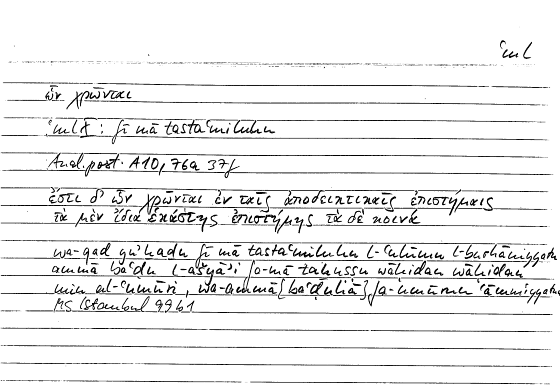 ʿml
ὧν χρῶνται
ʿml X : fī mā tastaʿmiluhu
Anal. post. A10, 76a 37f
ἔστι δ' ὧν χρῶνται ἐν ταῖς ἀποδεικτικαῖς ἐπιστήμαις
τὰ μὲν ἴδια ἑκάστης ἐπιστήμης τὰ δὲ κοινά
wa-qad yūǧadu fī mā tastaʿmiluhu l-ʿulūmu l-burhāniyyatu
ammā baʿḍu l-ašyāʾi fa-mā taḫuṣṣu wāḥidan wāḥidan
min al-ʿulūmi, wa-ammā {baʿḍuhā} fa-ʿulūmun ʿāmmiyyatun
MS Istanbul